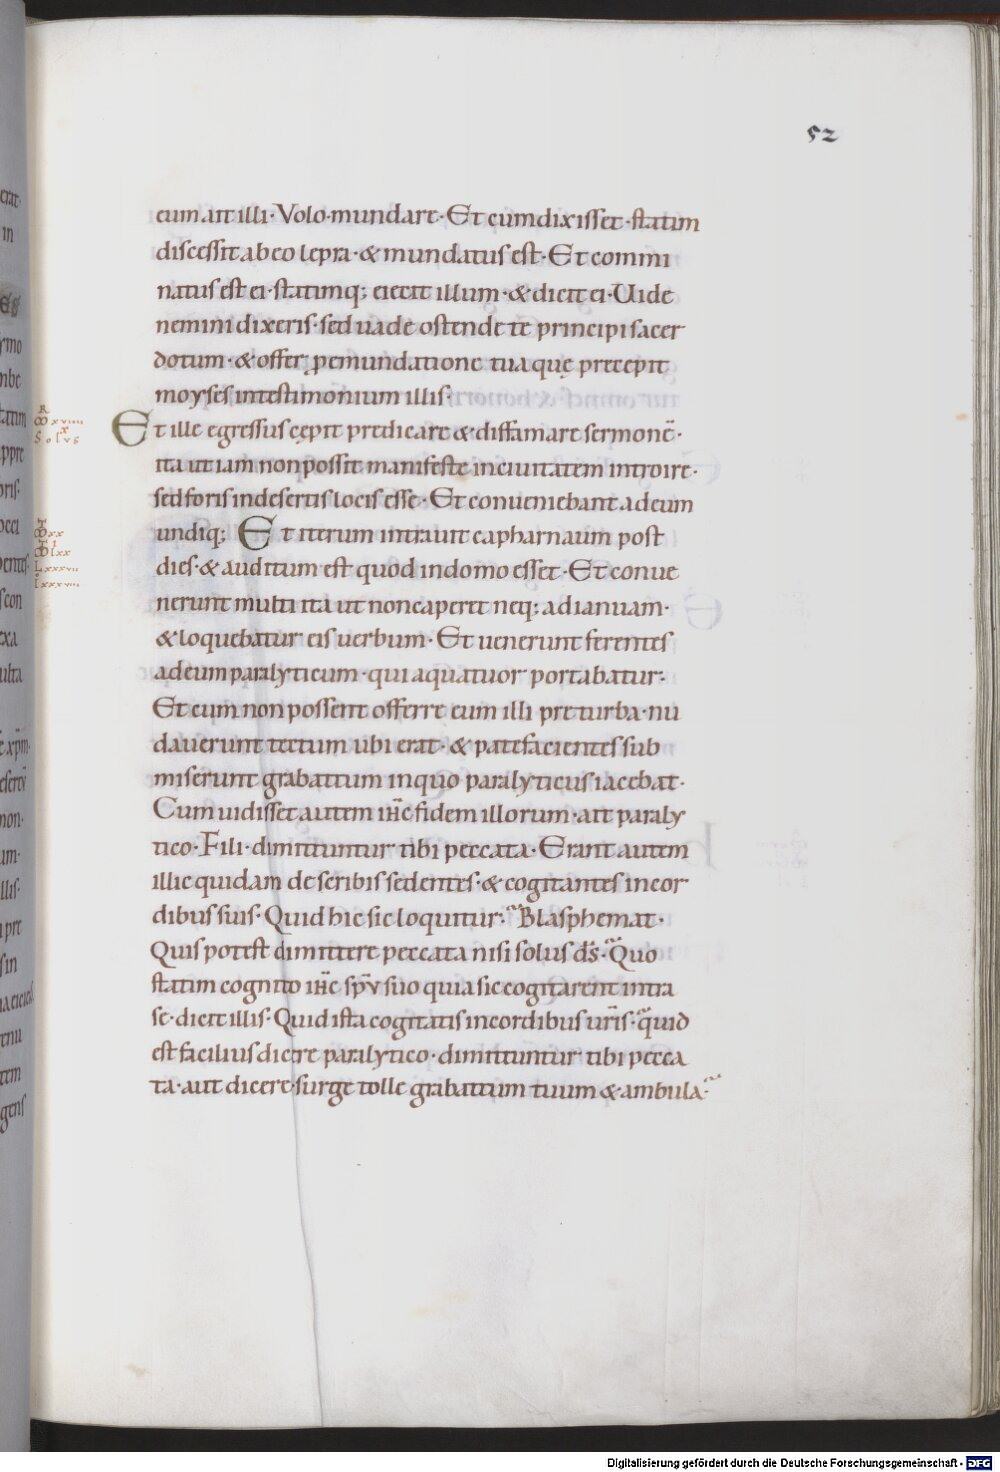 52
eum ait illi · Volo · mundare · Et cum dixisset · statim
discessit ab eo lepra · & mundatus est · Et commi
natus est ei · statimq; eiecit illum · & dicit ei · Uide
nemini dixeris · sed uade ostende te principi sacer
dotum · & offer ꝓ emundatione tua quę precepit
moyses in testimonium illis ·
Et ille egressus cępit predicare & diffamare sermonē ·
ita ut iam non possit manifeste in ciuitatem introire ·
sed foris in desertis locis esse · Et conueniebant ad eum
undiq; Et iterum intrauit capharnaum post
dies · & auditum est quod in domo esset · Et conue
nerunt multi ita ut non caperet neq; ad ianuam ·
& loquebatur eis uerbum · Et uenerunt ferentes
ad eum paralyticum · qui a quatuor portabatur ·
Et cum non possent offerre eum illi pre turba · nu
dauerunt tectum ubi erat · & patefacientes sub
miserunt grabattum in quo paralyticus iacebat ·
Cum uidisset autem ihc̄ fidem illorum · ait paraly
tico · Fili · dimittuntur tibi peccata · Erant autem
illic quidam de scribis sedentes · & cogitantes in cor
dibus suis · Quid hic sic loquitur · Blasphemat ·
Quis potest dimittere peccata nisi solus d̄s · Quo
statim cognito ihc̄ spū suo quia sic cogitarent intra
se · dicit illis · Quid ista cogitatis in cordibus ur̄is · quid
est facilius dicere paralytico · dimittuntur tibi pecca
ta · aut dicere · surge tolle grabattum tuum & ambula ·
Digitalisierung gefördert durch die Deutsche Forschungsgemeinschaft - DFG